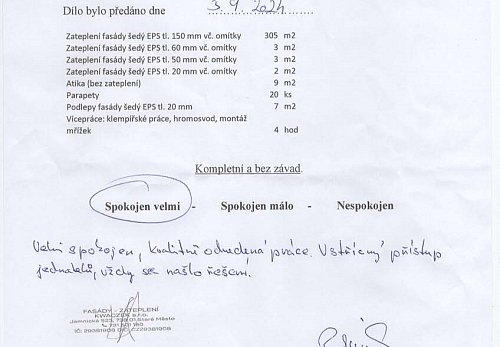 Dílo bylo předáno dne 3. 9. 2024
Zateplení fasády šedý EPS tl. 150 mm vč. omítky 305 m2
Zateplení fasády šedý EPS tl. 60 mm vč. omítky 3 m2
Zateplení fasády šedý EPS tl. 50 mm vč. omítky 3 m2
Zateplení fasády šedý EPS tl. 20 mm vč. omítky 2 m2
Atika (bez zateplení) 9 m2
Parapety 20 ks
Podlepy fasády šedý EPS tl. 20 mm 7 m2
Vícepráce: klempířské práce, hromosvod, montáž
mřížek 4 hod
Kompletní a bez závad.
Spokojen velmi - Spokojen málo - Nespokojen
Velmi spokojen, kvalitně odvedená práce. Vstřícný přístup
jednatelů, vždy se našlo řešení.
FASÁDY - ZATEPLENÍ
KWACZEK s.r.o.
Jamnická 523, 738 01 Staré Město